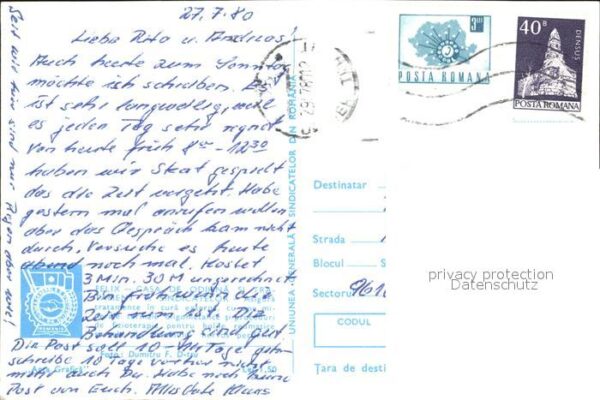 27.7.80
Liebe Rita u. Andreas!
Auch heute zum Sonntag
möchte ich schreiben. Es
ist sehr langweilig, weil
es jeden Tag sehr regnet
Von heute früh 8⁰⁰ - 12³⁰
haben wir Skat gespielt
das die Zeit vergeht. Habe
gestern mal anrufen wollen
aber das Gespräch kam nicht
durch. Versuche es heute
abend noch mal. Kostet
3 Min. 30 M umgerechnet
Bin froh wenn die
Zeit rum ist. Die
Behandlung sind gut
Die Post soll 10-14 Tage gehn
schreibe 10 Tage vor
mehr auch Du. Habe noch keine
Post von Euch. Alles Gute Klaus
Seit wir hier sind nur Regen
FELIX - CASA DE ODIHNĂ
tratamente în cură
Foto: Dumitru F. D-tru
"Arta Grafică"
Lei 1,50
ROMANIA
UNIUNEA GENERALĂ A SINDICATELOR DIN ROMÂNIA
3 LEI
POSTA ROMANA
40 B
DENSUS
POSTA ROMANA
Destinatar
Strada
Blocul
Sectorul
CODUL
Țara de desti
privacy protection
Datenschutz